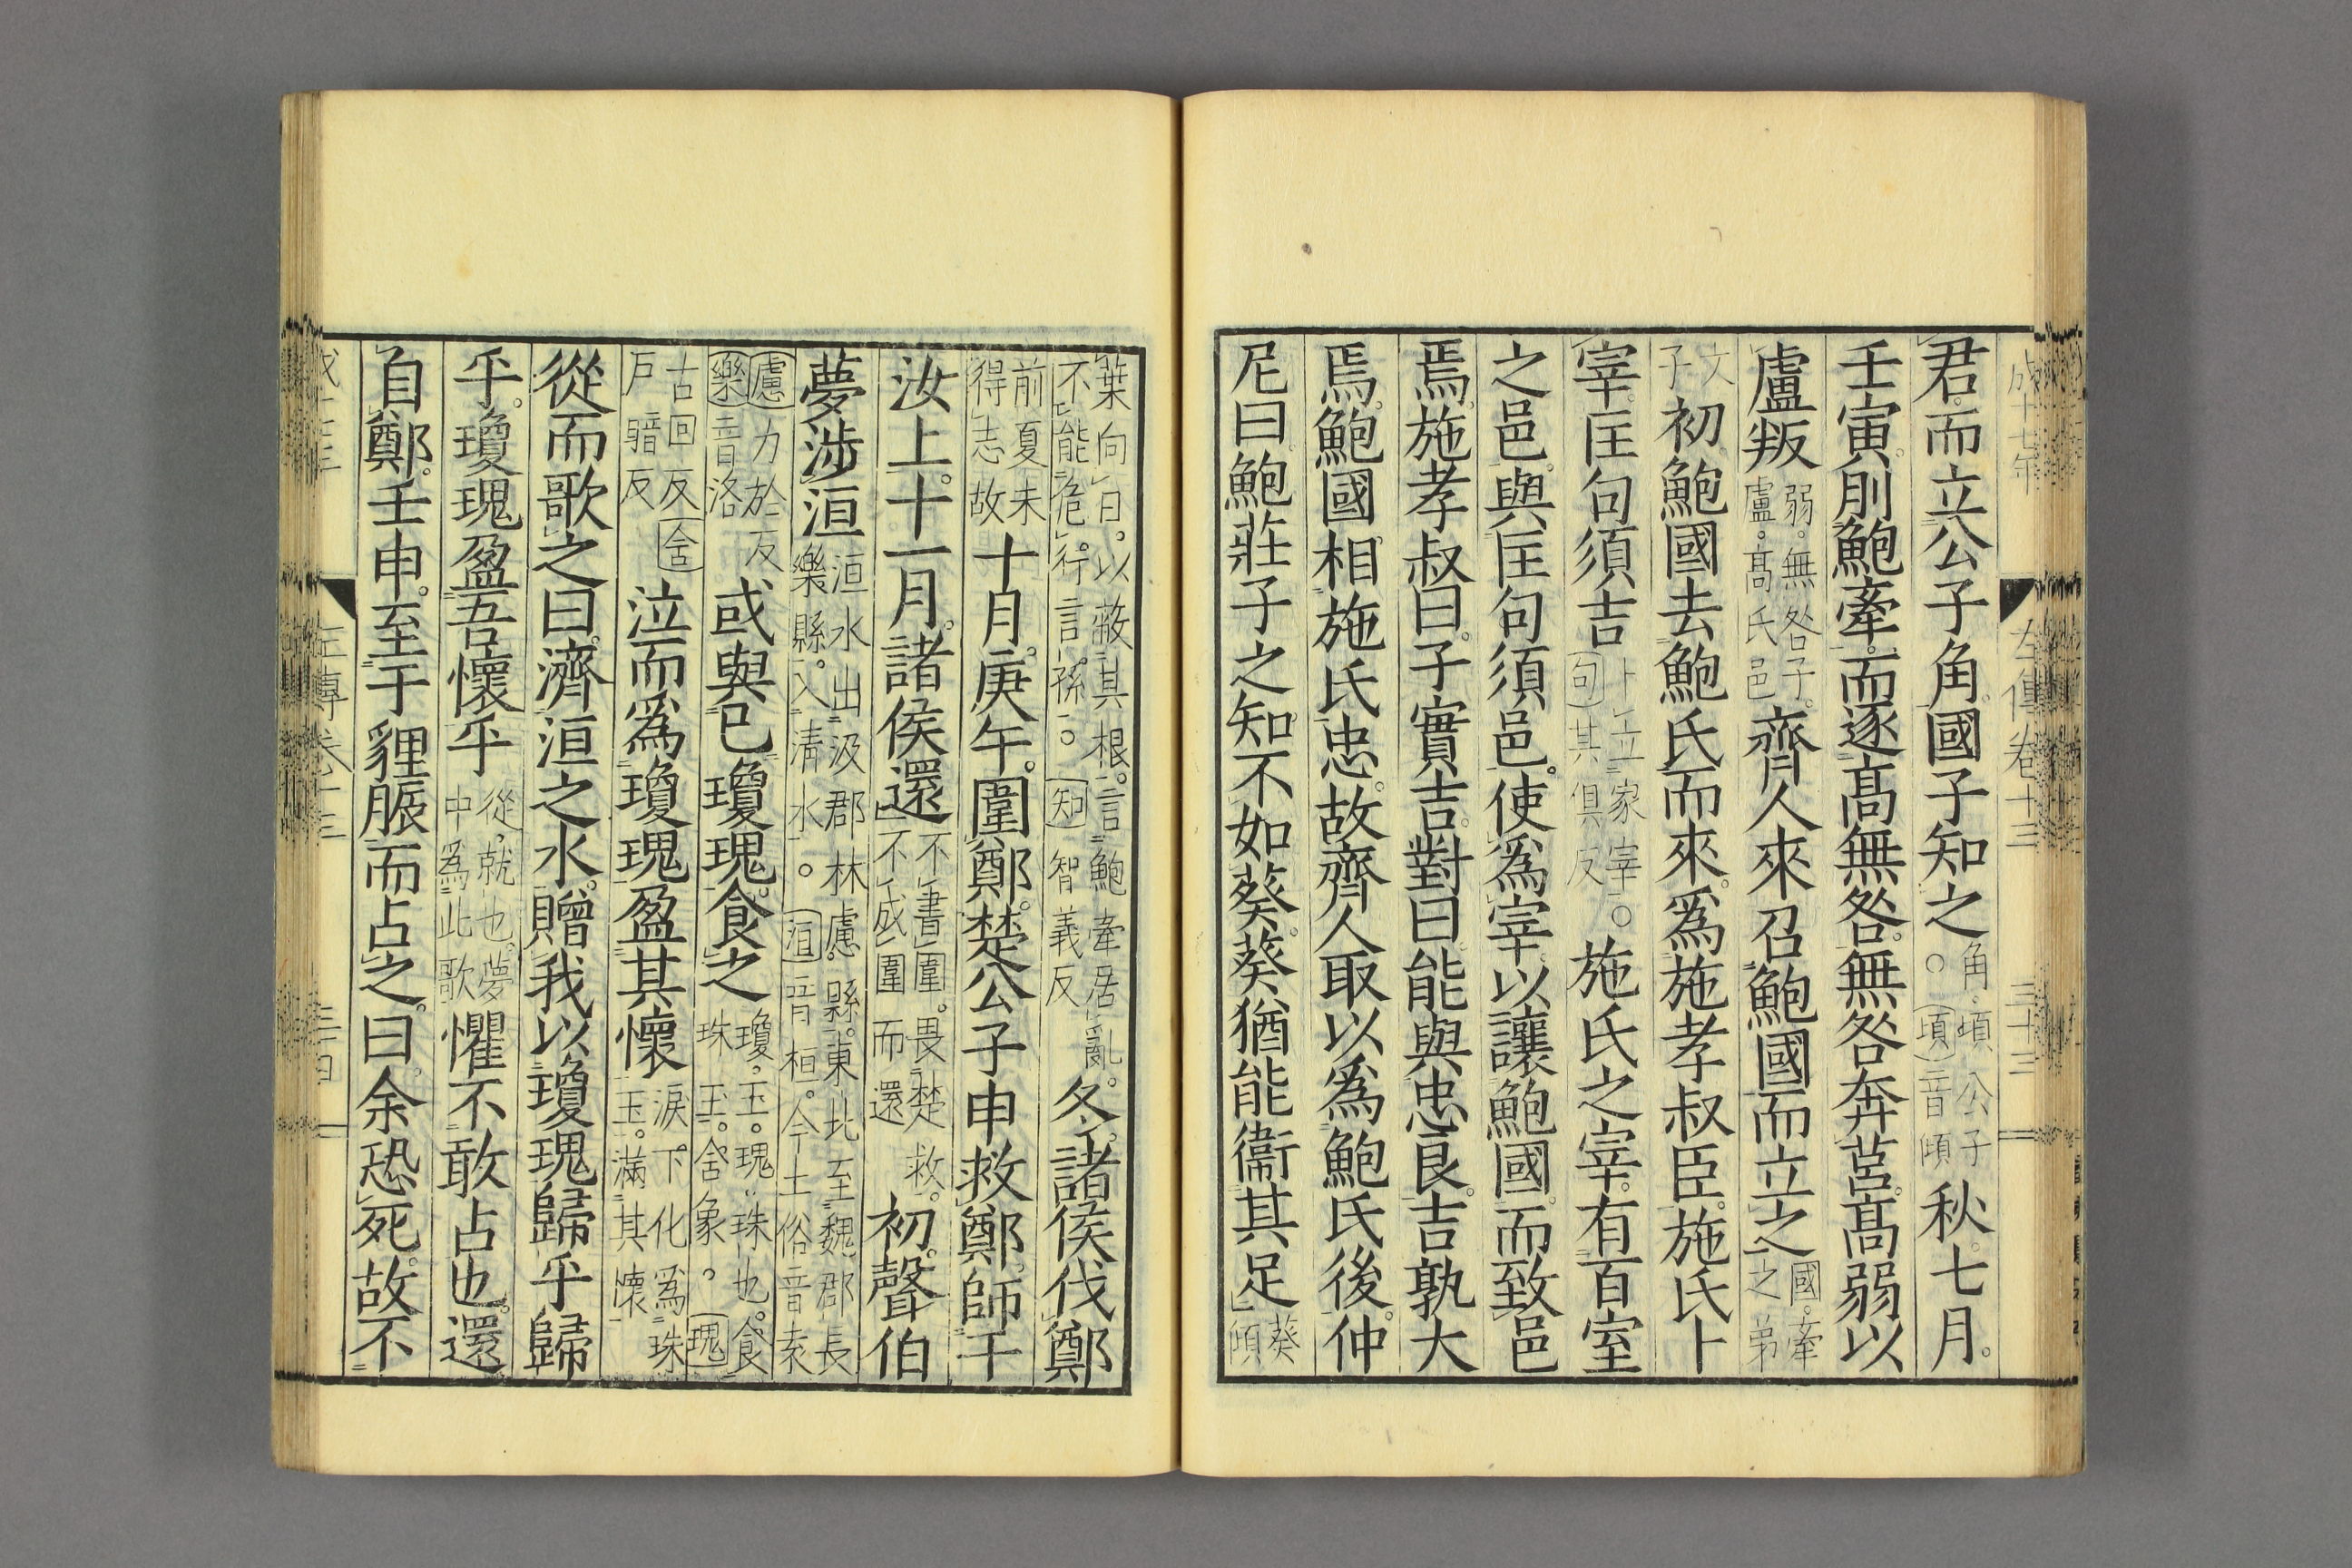 成十七年 左傳卷十三 三十三
君。而立公子角。國子知之角。頃公子○頃音傾秋。七月。
壬寅。刖鮑牽。而逐髙無咎。無咎奔莒。髙弱以
盧叛弱。無咎子。盧。髙氏邑齊人來召鮑國而立之國。牽之弟
文子初。鮑國去鮑氏而來。爲施孝叔臣。施氏卜
宰。匡句須吉卜立家宰。○句其俱反施氏之宰。有百室
之邑。與匡句須邑。使爲宰。以讓鮑國。而致邑
焉。施孝叔曰。子實吉。對曰。能與忠良。吉孰大
焉。鮑國相施氏忠。故齊人取以爲鮑氏後。仲
尼曰。鮑莊子之知。不如葵。葵猶能衞其足葵傾
葉向日。以蔽其根。言鮑牽居亂。不能危行言孫。○知智義反冬。諸侯伐鄭
前夏未得志故十月。庚午。圍鄭。楚公子申救鄭。師于
汝上。十一月。諸侯還不書圍。畏楚救。不成圍而還初。聲伯
夢涉洹洹水出汲郡林慮縣。東北至魏郡長樂縣。入淸水。○洹音桓。今土俗音袁
慮力於反樂音洛或與己瓊瑰。食之瓊。玉。瑰。珠也。食珠玉。含象。○瑰
古回反含戶暗反泣而爲瓊瑰。盈其懷淚下化爲珠玉。滿其懷
從而歌之曰。濟洹之水。贈我以瓊瑰。歸乎歸
乎。瓊瑰盈吾懷乎從。就也。夢中爲此歌懼不敢占也。還
自鄭。壬申。至于貍脤而占之。曰。余恐死。故不
左傳卷十三 三十四